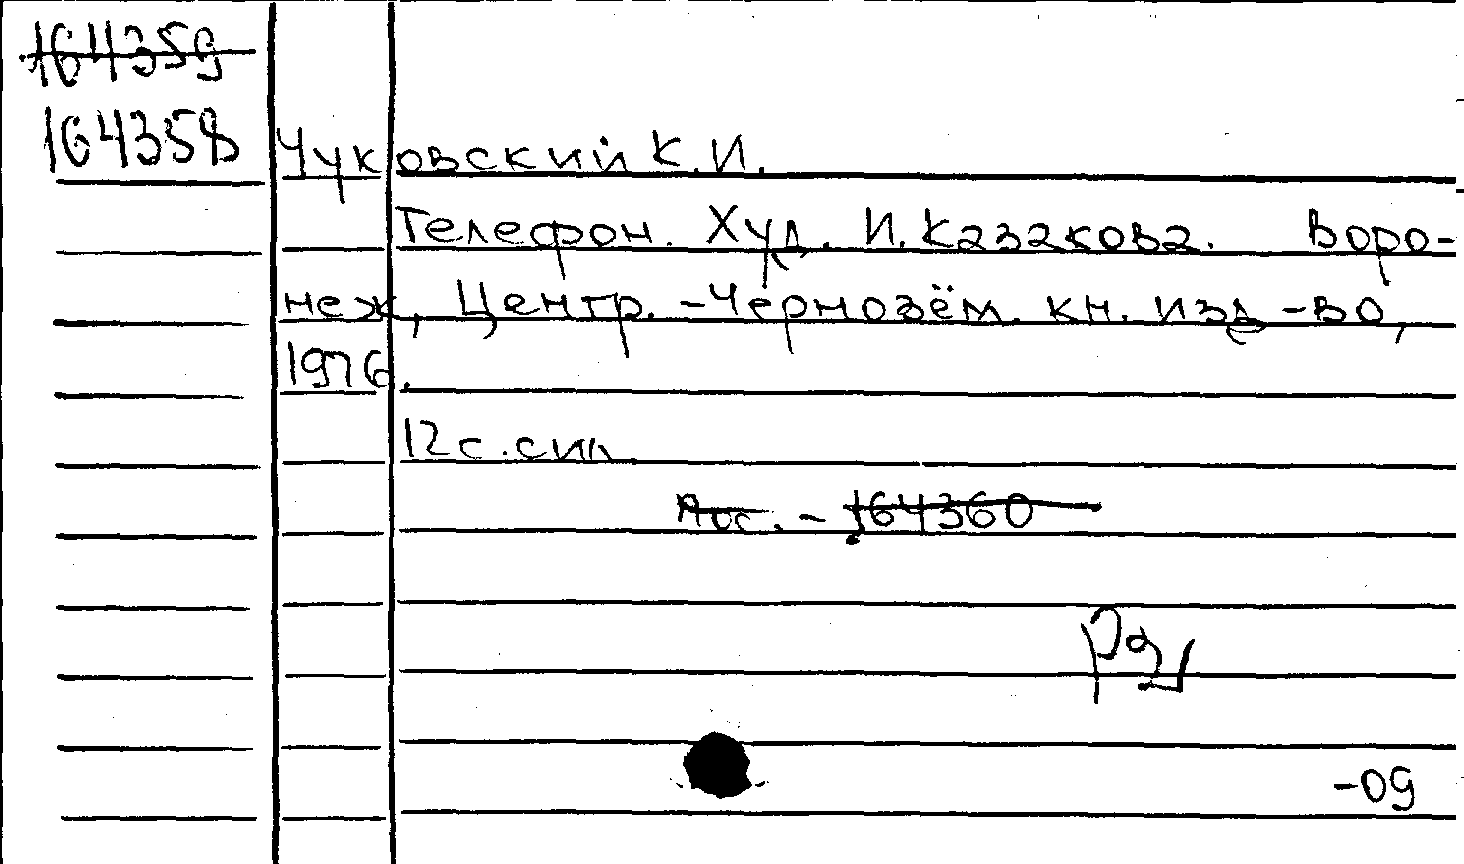 164359
164358
Чуковский К.И.
Телефон. Худ. И. Казакова. Воро-
неж, Центр.-Чернозём. кн. изд-во,
1976.
12 с. с ил.
Рос. - 164360
-09